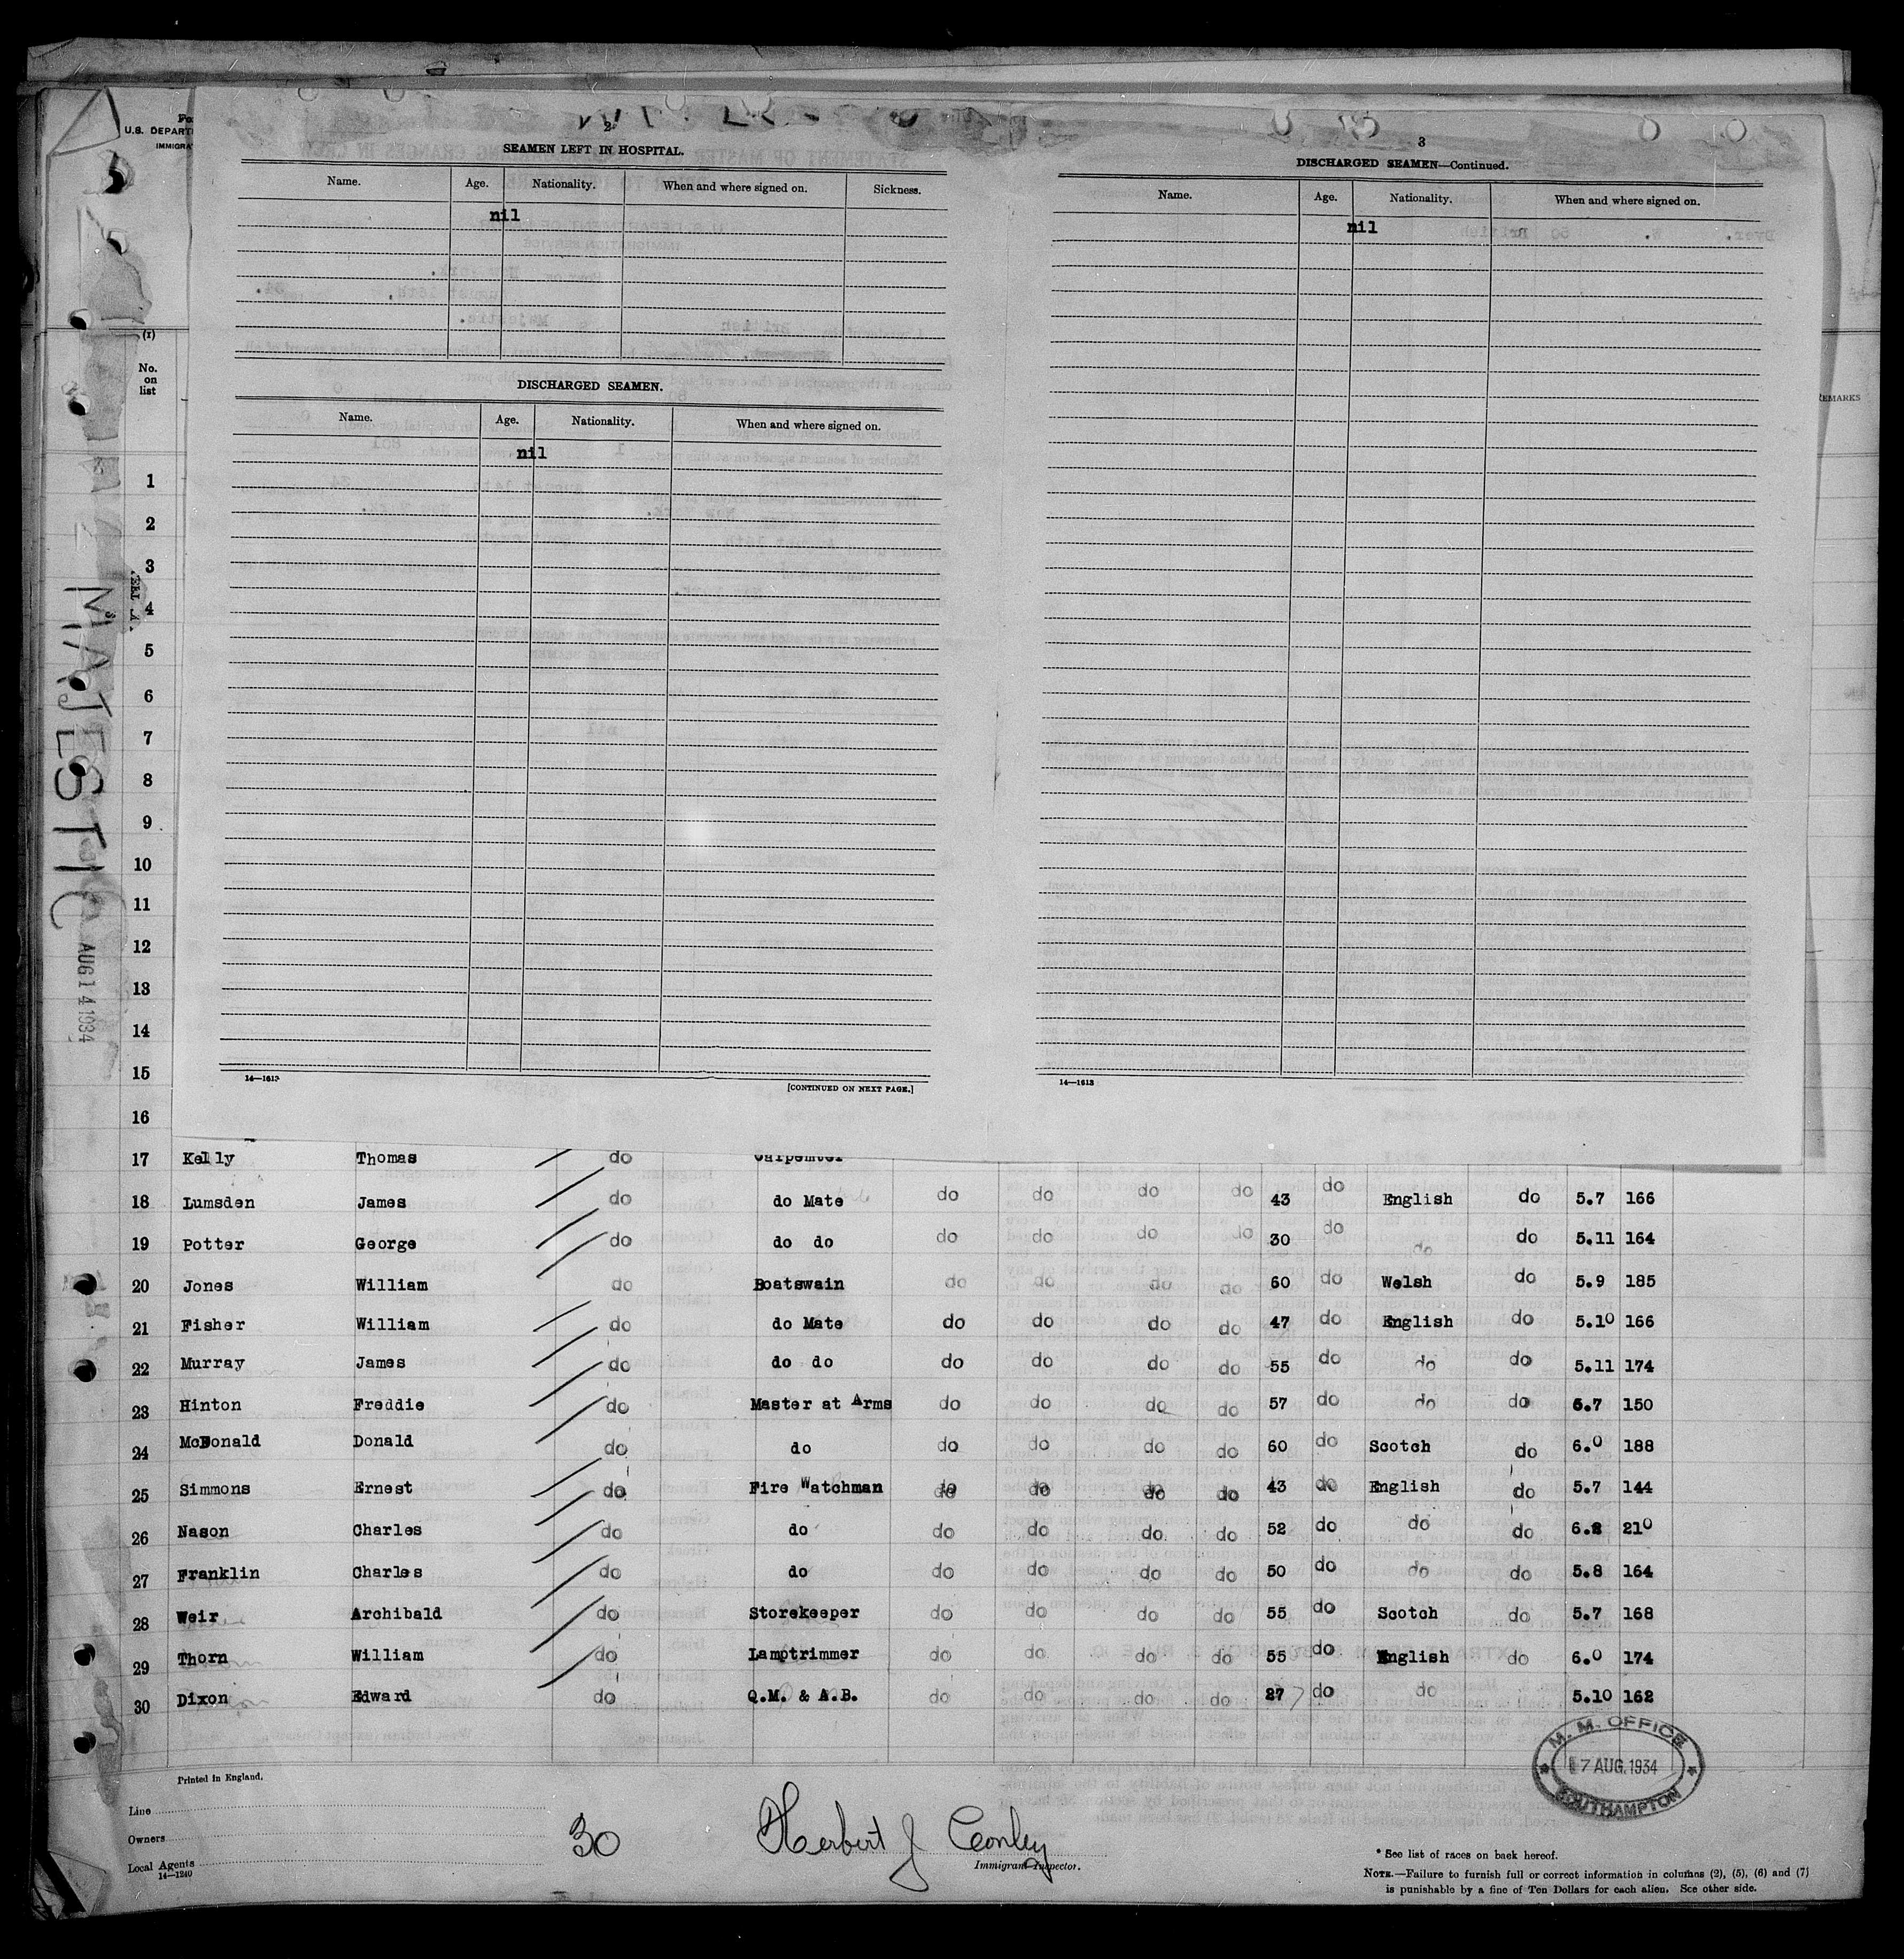 U.S. DEPART
IMMIGRA
(1)
No.
on
list
REMARKS
MAJESTIC
AUG 14 1934
2
SEAMEN LEFT IN HOSPITAL.
Name. Age. Nationality. When and where signed on. Sickness.
nil
DISCHARGED SEAMEN.
Name. Age. Nationality. When and where signed on.
nil
14—1613 [CONTINUED ON NEXT PAGE.]
3
DISCHARGED SEAMEN—Continued.
Name. Age. Nationality. When and where signed on.
nil
14—1613
1
2
3
4
5
6
7
8
9
10
11
12
13
14
15
16
17 Kelly Thomas do Carpenter
18 Lumsden James do do Mate do do do do 43 do English do 5.7 166
19 Potter George do do do do do do do 30 do do do 5.11 164
20 Jones William do Boatswain do do do do 60 do Welsh do 5.9 185
21 Fisher William do do Mate do do do do 47 do English do 5.10 166
22 Murray James do do do do do do do 55 do do do 5.11 174
23 Hinton Freddie do Master at Arms do do do do 57 do do do 5.7 150
24 McDonald Donald do do do do do do 60 do Scotch do 6.0 188
25 Simmons Ernest do Fire Watchman do do do do 43 do English do 5.7 144
26 Nason Charles do do do do do do 52 do do do 6.2 210
27 Franklin Charles do do do do do do 50 do do do 5.8 164
28 Weir Archibald do Storekeeper do do do do 55 do Scotch do 5.7 168
29 Thorn William do Lamptrimmer do do do do 55 do English do 6.0 174
30 Dixon Edward do Q.M. & A.B. do do do do 27 do do 5.10 162
M. M. OFFICE
7 AUG. 1934
SOUTHAMPTON
Printed in England.
Line
Owners
Local Agents
14—1240
30
Herbert J Conley
Immigrant Inspector.
* See list of races on back hereof.
NOTE.—Failure to furnish full or correct information in columns (2), (5), (6) and (7)
is punishable by a fine of Ten Dollars for each alien. See other side.